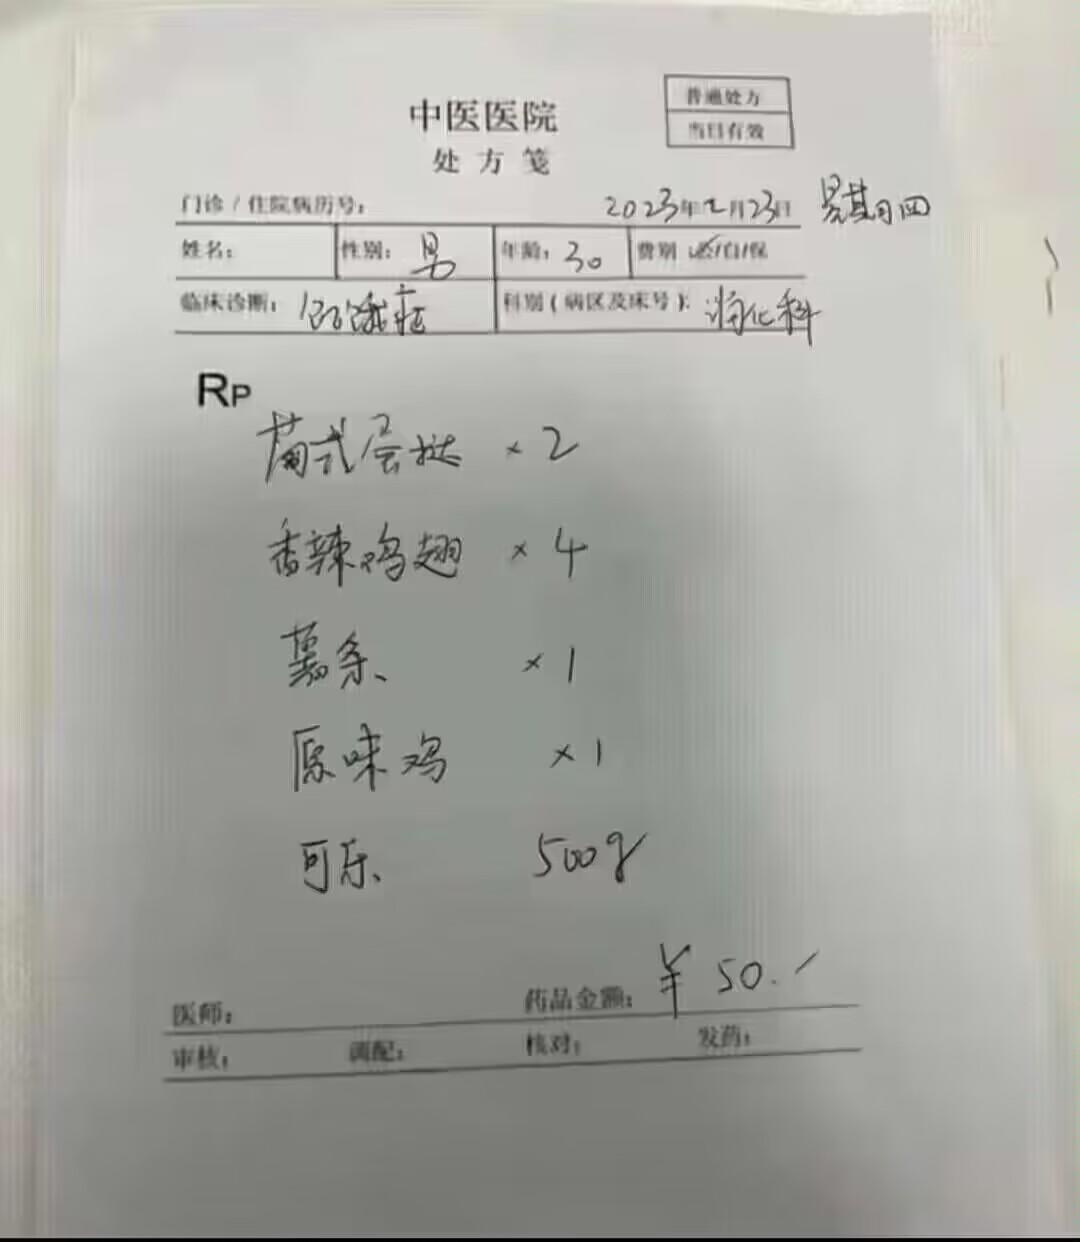 普通处方
当日有效
中医医院
处方笺
门诊/住院病历号: 2023年2月23日 星期四
姓名: 性别: 男 年龄: 30 费别 /自/保
临床诊断: 饥饿症 科别(病区及床号): 消化科
RP
葡式蛋挞 × 2
香辣鸡翅 × 4
薯条 × 1
原味鸡 × 1
可乐 500g
医师: 药品金额: ¥ 50.
审核: 调配: 核对: 发药: